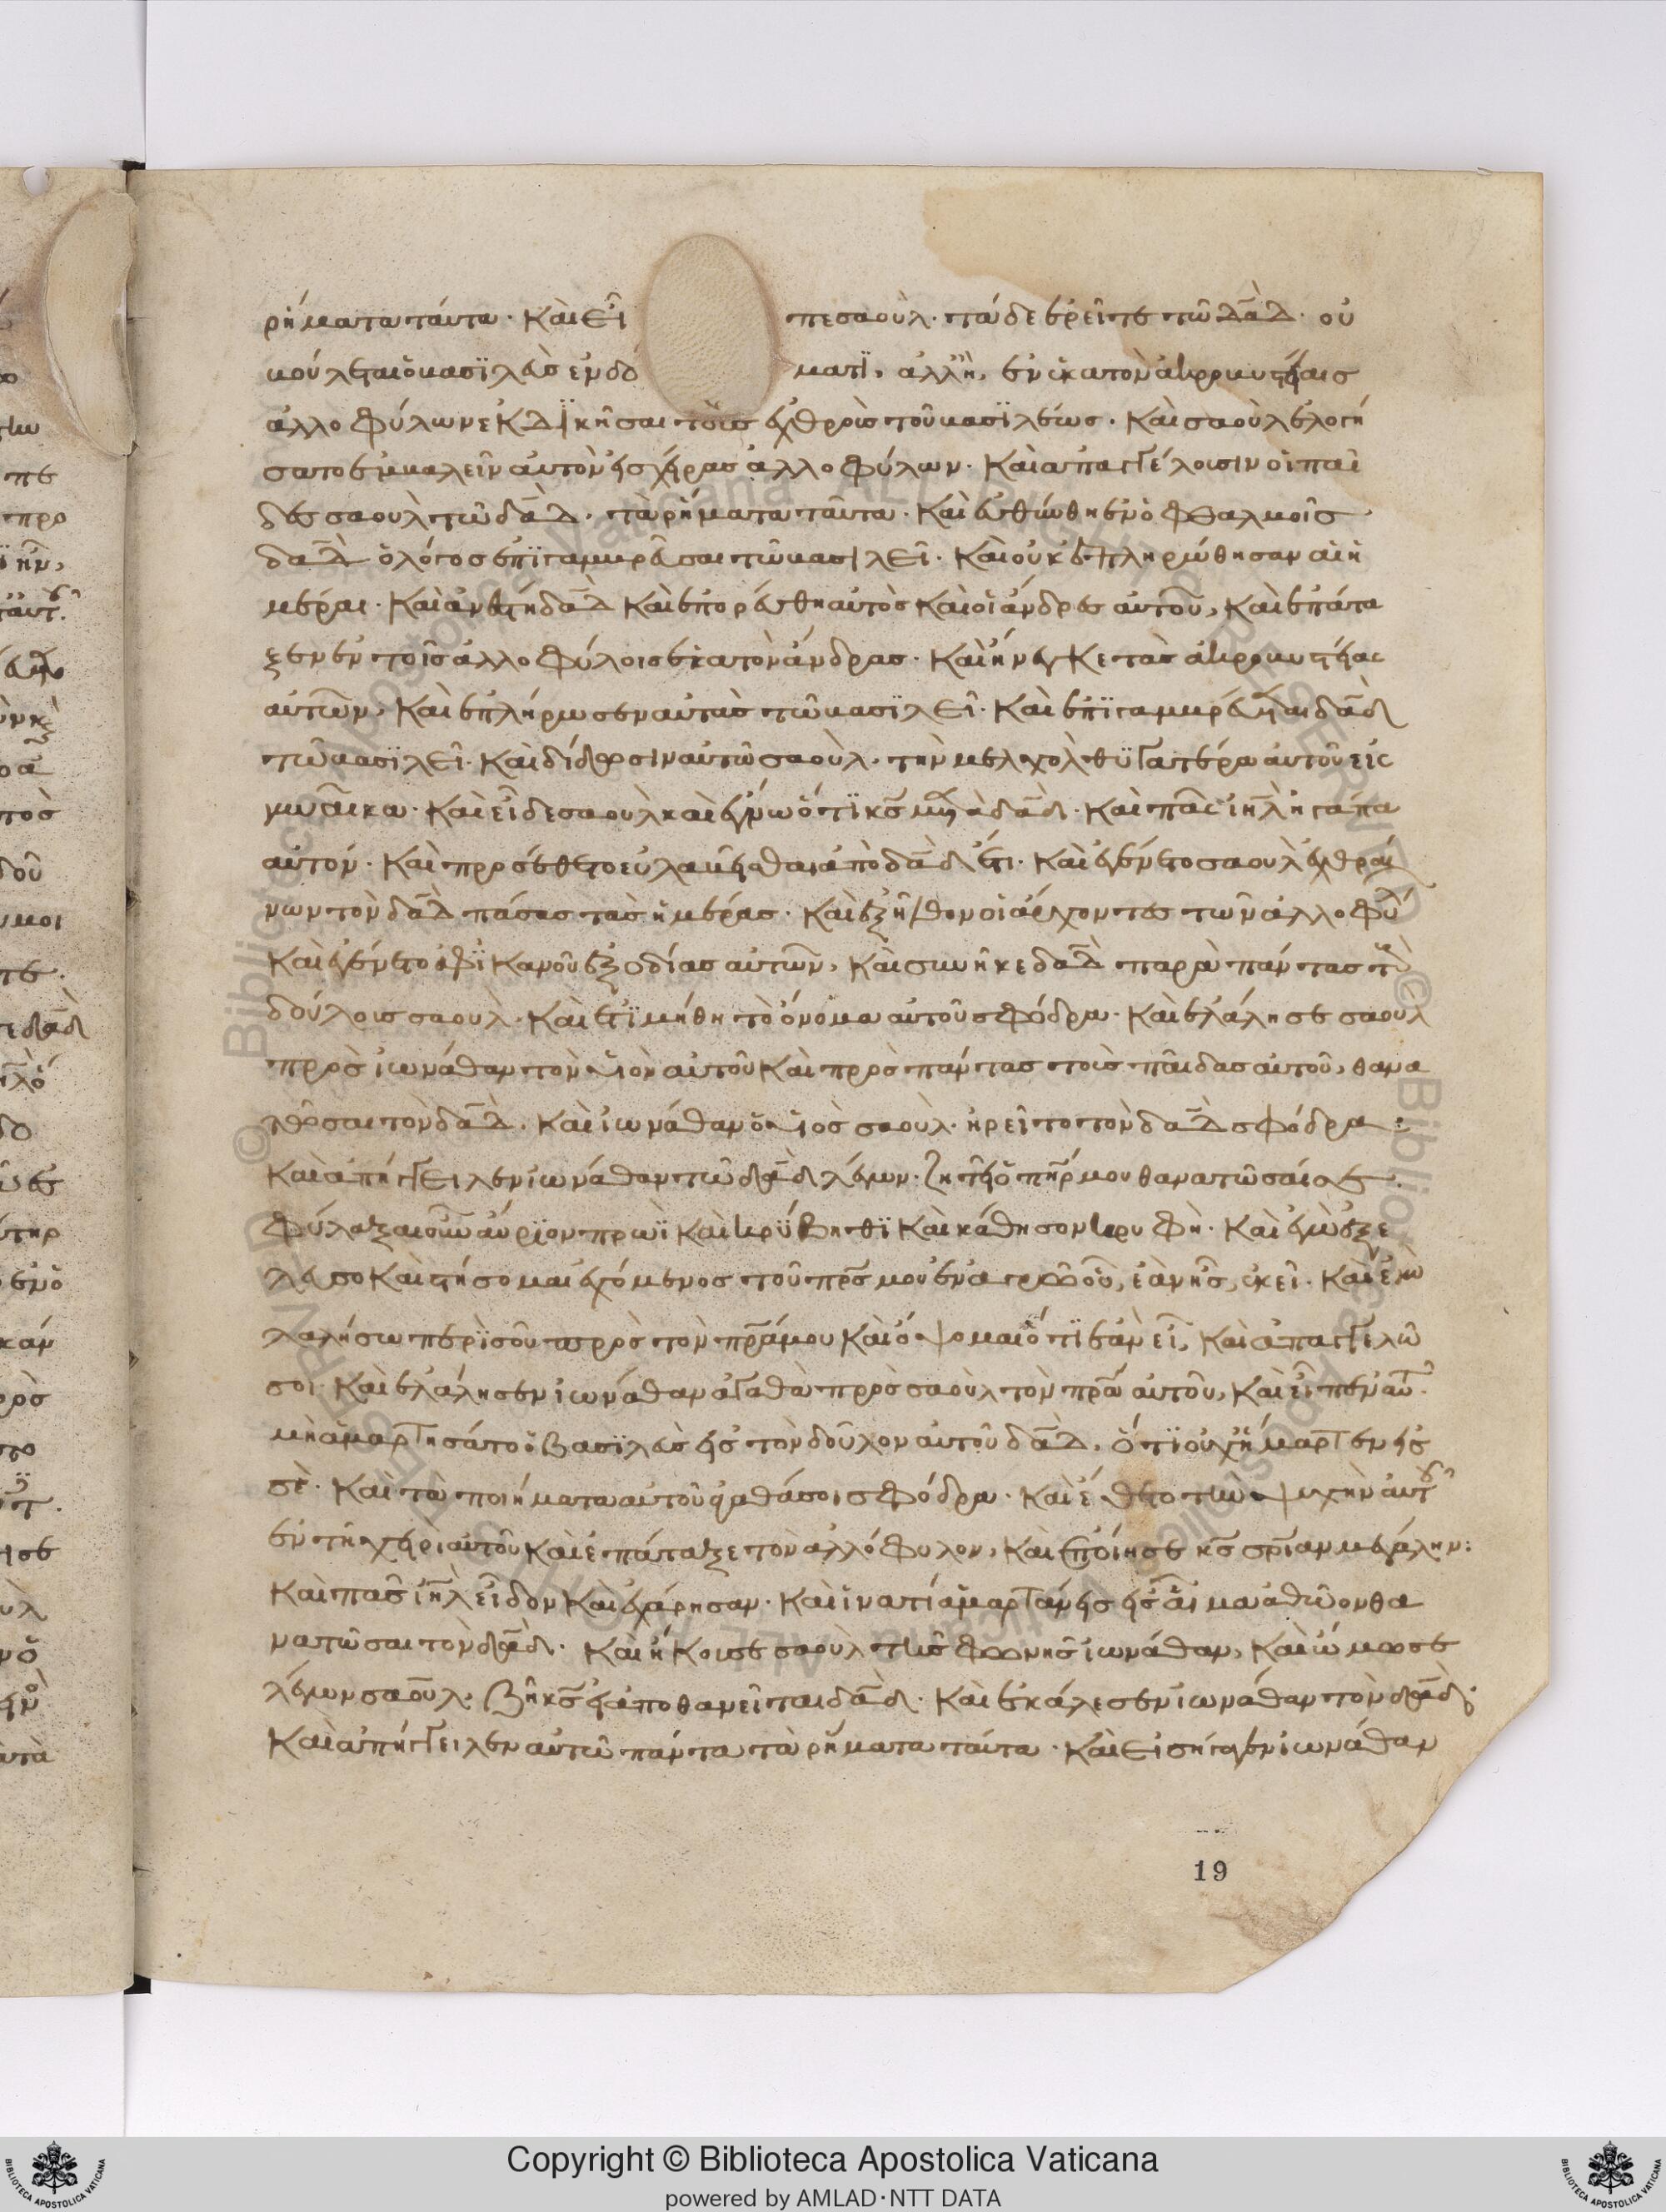 ρήματα ταῦτα· καὶ εἶπε σαοὺλ· τάδε ἐρεῖτε τῶ δαδ· οὐ
βούλεται ὁ βασϊλεὺς ἐν δόματϊ, ἀλλ ἢ, ἐν ἑκατὸν ἀκροβυστίαις
ἀλλοφύλων ἐκδϊκῆσαι τοὺς ἐχθροὺς τοῦ βασϊλέως· καὶ σαοὺλ ἐλογή
σατο ἐμβαλεῖν αὐτὸν εἰς χεῖρας ἀλλοφύλων· καὶ ἀπαγγέλουσιν οἱ παῖ
δες σαουλ τῶ δαδ· τὰ ρήματα ταῦτα· καὶ εὐθύνθη ἐν ὀφθαλμοῖς
δαδ ὁ λόγος ἐπϊγαμβρεῦσαι τῶ βασιλεῖ· καὶ οὐκ ἐπληρώθησαν αἱ ἡ
μέραι· καὶ ἀνέστη δαδ καὶ ἐπορεύθη αὐτὸς καὶ οἱ ἄνδρες αὐτοῦ, καὶ ἐπάτα
ξεν ἐν τοῖς ἀλλοφύλοις ἑκατὸν ἄνδρας· καὶ ἤνεγκε τὰς ἀκροβυστίας
αὐτῶν, καὶ ἐπλήρωσεν αὐτὰς τῶ βασϊλεῖ· καὶ ἐπϊγαμβρεύεται δαδ
τῶ βασϊλεῖ· καὶ δίδωσιν αὐτῶ σαοὺλ· τὴν μελχὸλ θϋγατέρα αὐτοῦ εἰς
γυναῖκα· καὶ εἶδε σαουλ καὶ ἔγνω ὅτϊ κς μετὰ δαδ· καὶ πᾶς ιηλ ἠγάπα
αὐτόν· καὶ προσέθετο εὐλαβεῖσθαι ἀπὸ δαδ ἔτι· καὶ ἐγένετο σαουλ ἐχθραί
νων τὸν δαδ πάσας τὰς ἡμέρας· καὶ ἐξῆλθον οἱ ἄρχοντες τῶν ἀλλοφύλ
καὶ ἐγένετο ἀφϊκανοῦ ἐξοδίας αὐτῶν, καὶ συνῆκε δαδ παρὰ πάντας τοὺς
δούλους σαουλ· καὶ ἐτϊμήθη τὸ ὄνομα αὐτοῦ σφόδρα· καὶ ἐλάλησε σαουλ
πρὸς ἰωνάθαν τὸν υἱὸν αὐτοῦ καὶ πρὸς πάντας τοὺς παῖδας αὐτοῦ, θανα
τῶσαι τὸν δαδ· καὶ ἰωνάθαν ὁ υἱὸς σαουλ· ἡρεῖτο τὸν δαδ σφόδρα·
καὶ ἀπήγγειλεν ἰωνάθαν τῶ δαδ λέγων· ζητεῖ ὁ πηρ μου θανατῶσαί σε·
φύλαξαι οὖν αὔρϊον πρωῒ καὶ κρύβηθϊ καὶ κάθησον κρυφῆ· καὶ ἐγὼ ἐξε
λεύσομαι καὶ στήσομαι ἐχόμενος τοῦ πρς μου ἐν ἀγρῶ οὗ, ἐὰν ἦς, ἐκεῖ· καὶ ἐγὼ
λαλήσω περϊ σοῦ πρὸς τὸν πρα μου καὶ ὄψομαι ὅτϊ ἐὰν εἶ, καὶ ἀπαγγελῶ
σοι· καὶ ἐλάλησεν ἰωνάθαν ἀγαθὰ πρὸς σαουλ τὸν πρα αὐτοῦ, καὶ εἶπεν αὐτ
μὴ ἁμαρτησάτο ὁ βασϊλεὺς εἰς τὸν δοῦλον αὐτοῦ δαδ, ὅτϊ οὐχ ἡμάρτεν εἰς
σὲ· καὶ τὰ ποιήματα αὐτοῦ ἀγαθά σοι σφόδρα· καὶ ἔθετο τὴν ψυχὴν αὐτοῦ
ἐν τῆ χειρὶ αὐτοῦ καὶ ἐπάταξε τὸν ἀλλόφυλον, καὶ ἐποίησε κς σρίαν μεγάλην:
καὶ πᾶς ιηλ εἶδον καὶ ἐχάρησαν· καὶ ἱνατί ἁμαρτάνεις εἰς αἷμα ἀθῶον θα
νατῶσαι τὸν δαδ· καὶ ἤκουσε σαουλ τῆς φωνῆς ἰωνάθαν, καὶ ὤμοσε
λέγων σαουλ· ζῆ κς εἰ ἀποθανεῖται δαδ· καὶ ἐκάλεσεν ἰωνάθαν τὸν δαδ·
καὶ ἀπήγγειλεν αὐτῶ πάντα τὰ ρήματα ταῦτα· καὶ εἰσήγαγεν ἰωνάθαν
19
Copyright © Biblioteca Apostolica Vaticana
powered by AMLAD·NTT DATA